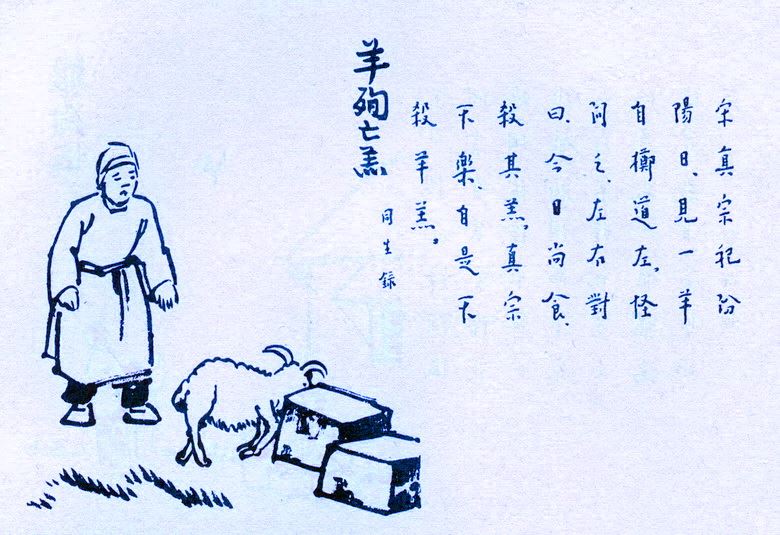 宋真宗祀汾
陽日、見一羊
自擲道左、怪
問之、左右對
曰、今日尚食、
殺其羔、真宗
不樂、自是不
殺羊羔。
羊殉亡羔
同生錄